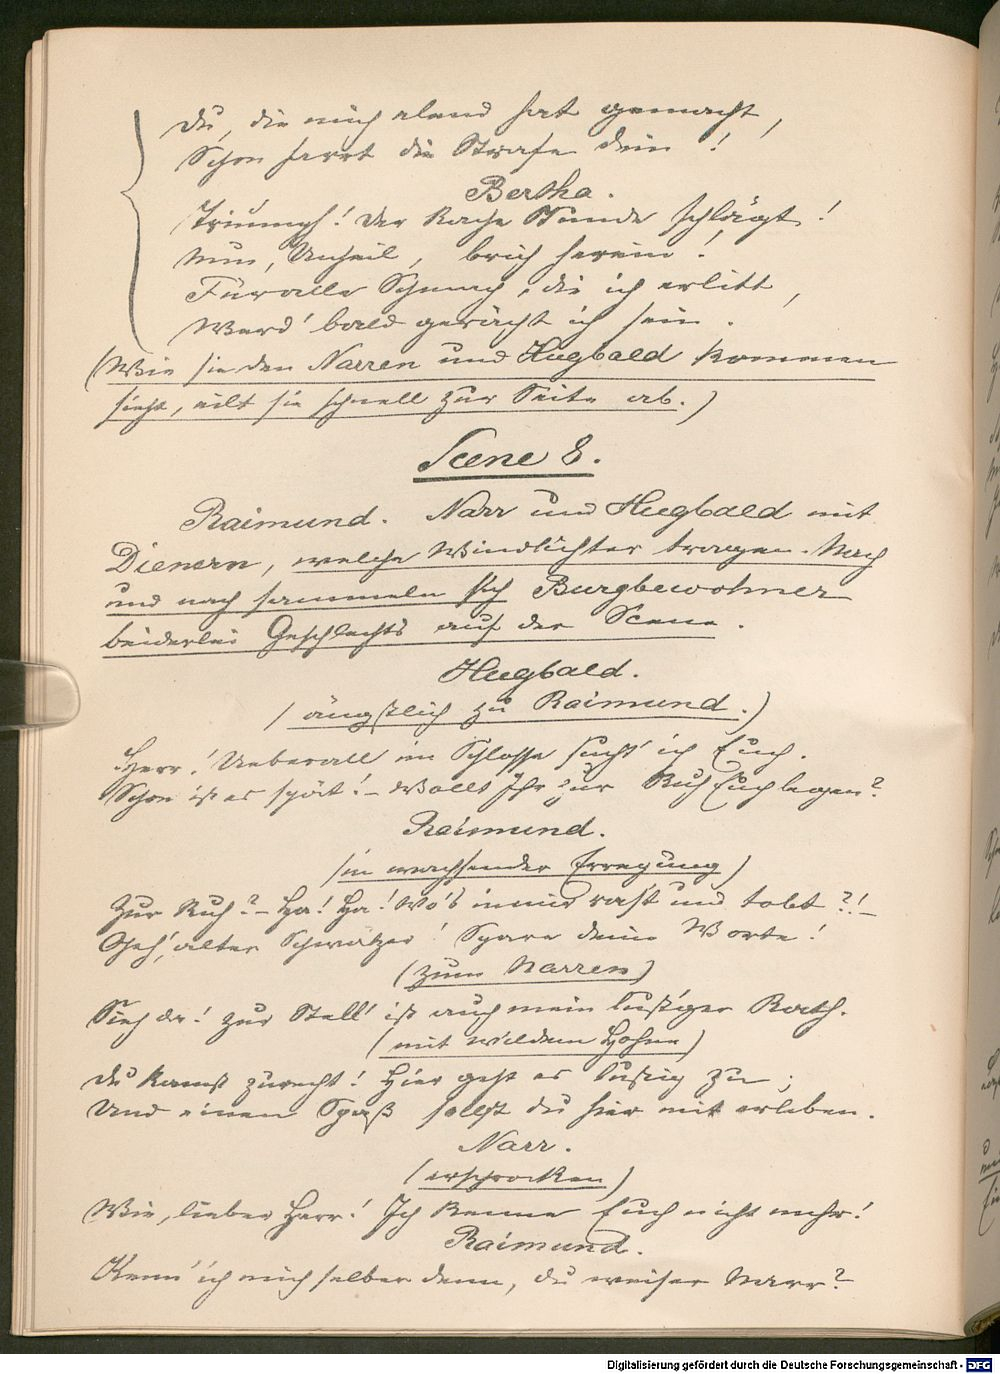 Du, die mich elend hat gemacht,
Schon harrt die Strafe dein!
Bertha.
Triumph! Der Rache Stunde schlägt!
Nun, Unheil, brich herein!
Für alle Schmach, die ich erlitt,
Werd' bald gerächt ich sein.
(Wie sie den Narren und Hugbald kommen
sieht, eilt sie schnell zur Seite ab.)
Scene 8.
Raimund. Narr und Hugbald mit
Dienern, welche Windlichter tragen. Nach
und nach sammeln sich Burgbewohner
beiderlei Geschlechts auf der Scene.
Hugbald.
(ängstlich zu Raimund.)
Herr! Ueberall im Schlosse sucht' ich Euch.
Schon ist es spät! - Wollt Ihr zur Ruh Euch legen?
Raimund.
(in wachsender Erregung)
Zur Ruh? - Ha! Ha! Wo's in mir rast und tobt?! -
Geh', alter Schwätzer! Spare deine Worte!
(zum Narren)
Sieh da! zur Stell' ist auch mein lust'ger Rath.
(mit wildem Hohne)
Du kamst zurecht! Hier geht es lustig zu;
Und einen Spaß sollst du hier mit erleben.
Narr.
(erschrocken)
Wie, lieber Herr! Ich kenne Euch nicht mehr!
Raimund.
Kenn' ich mich selber denn, du weiser Narr?
Digitalisierung gefördert durch die Deutsche Forschungsgemeinschaft - DFG